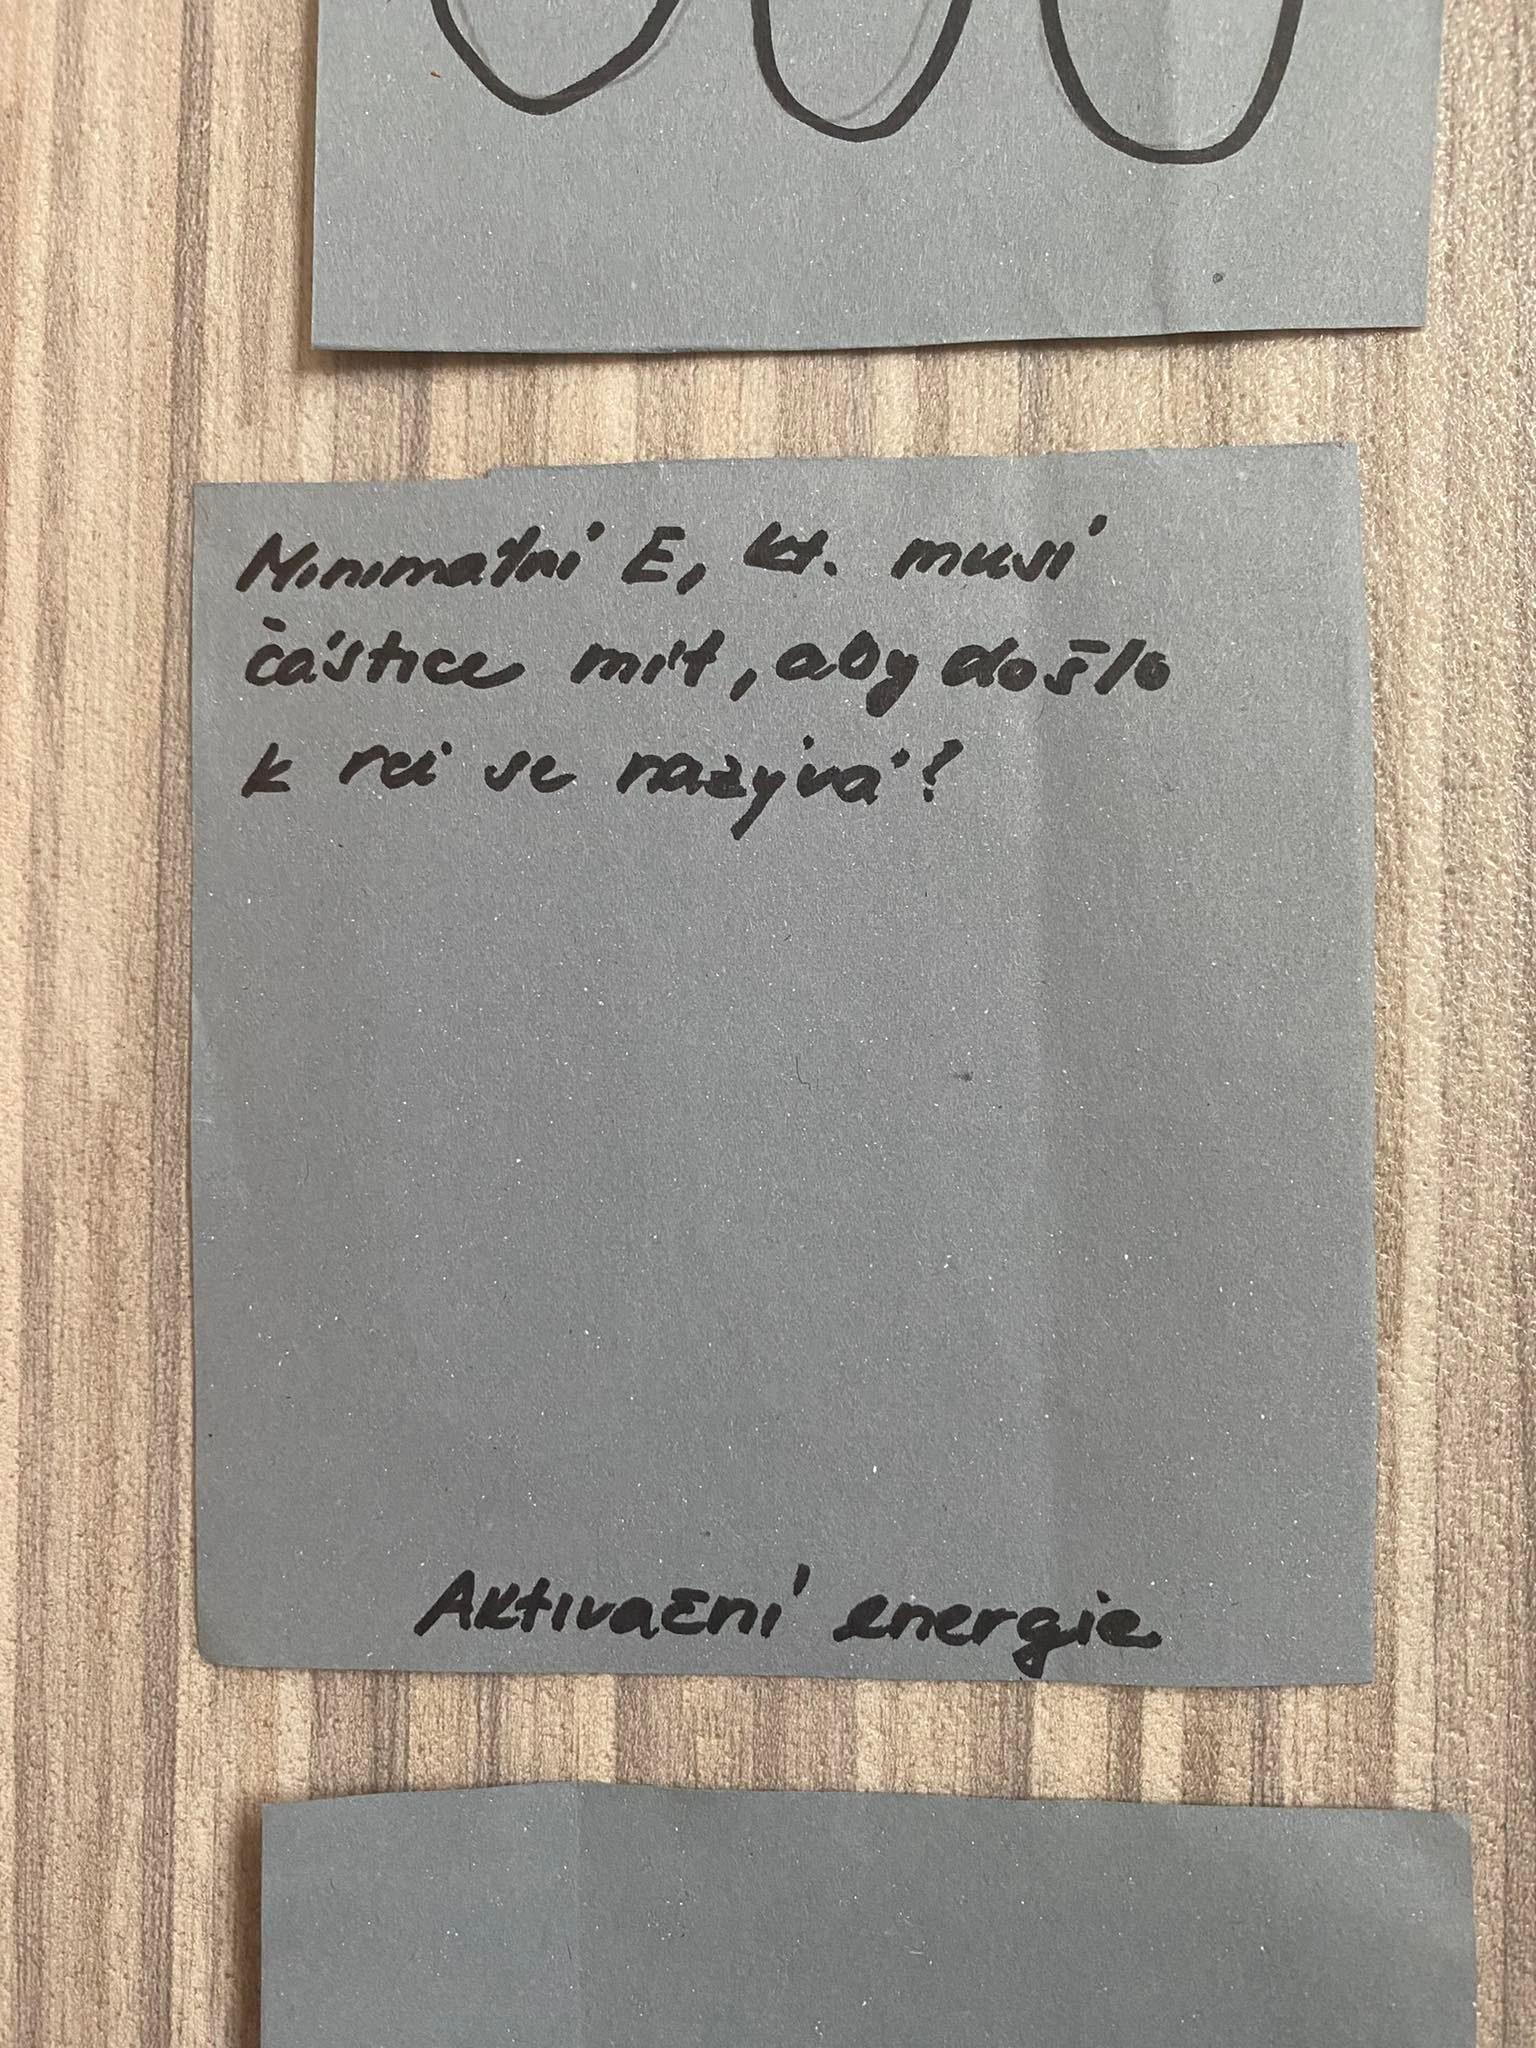 Minimální E, kt. musí
částice mít, aby došlo
k rci se nazývá?
Aktivační energie